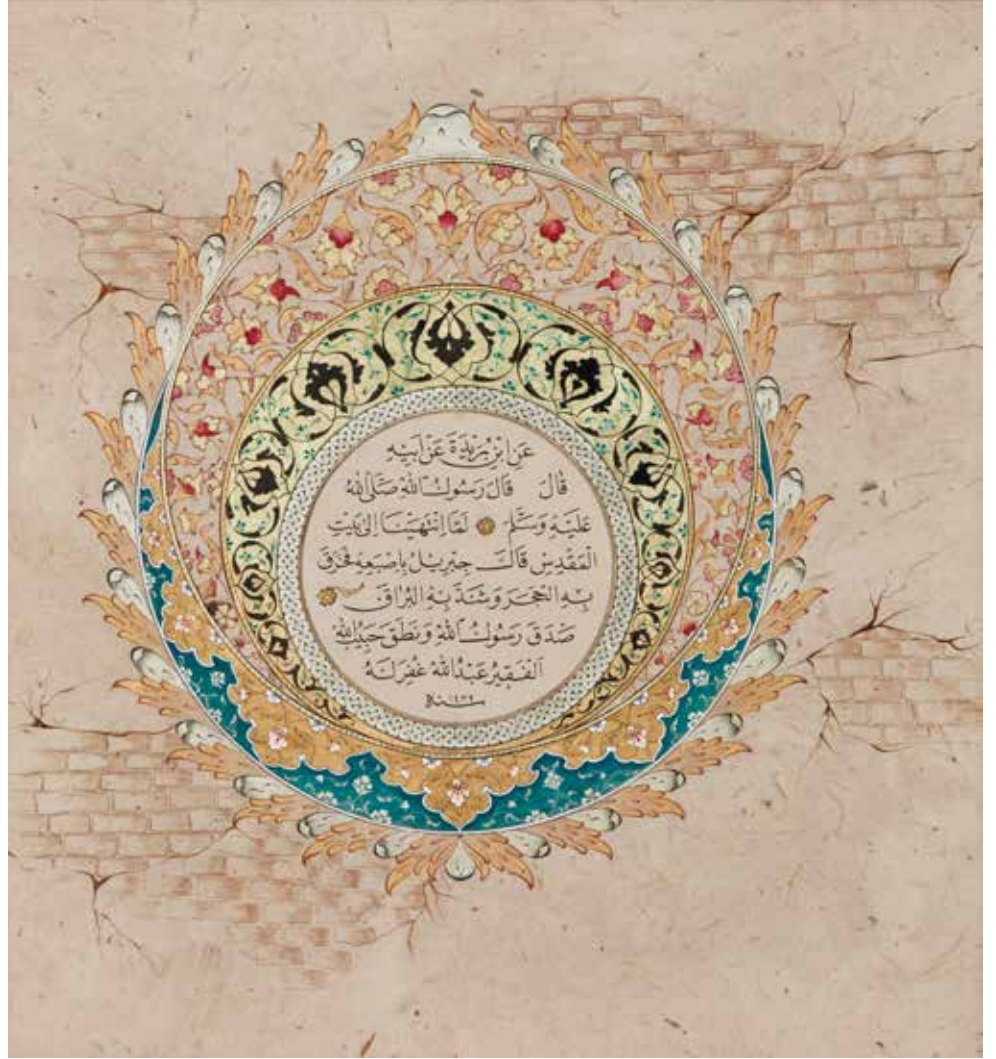 عَنِ ابْنِ بُرَيْدَةَ عَنْ اَبِيهِ
قَالَ قَالَ رَسُولُ اللهِ صَلَّى اللهُ
عَلَيْهِ وَسَلَّمَ لَمَّا اِنْتَهَيْنَا اِلَى بَيْتِ
الْمَقْدِسِ قَالَ جِبْرِيلُ بِاِصْبَعِهِ فَخَرَقَ
بِهِ الْحَجَرَ وَشَدَّ بِهِ الْبُرَاقَ
صَدَقَ رَسُولُ اللهِ وَنَطَقَ حَبِيبُ اللهِ
اَلْفَقِيرُ عَبْدُ اللهِ غُفِرَ لَهُ
سنة ١٤٣٩